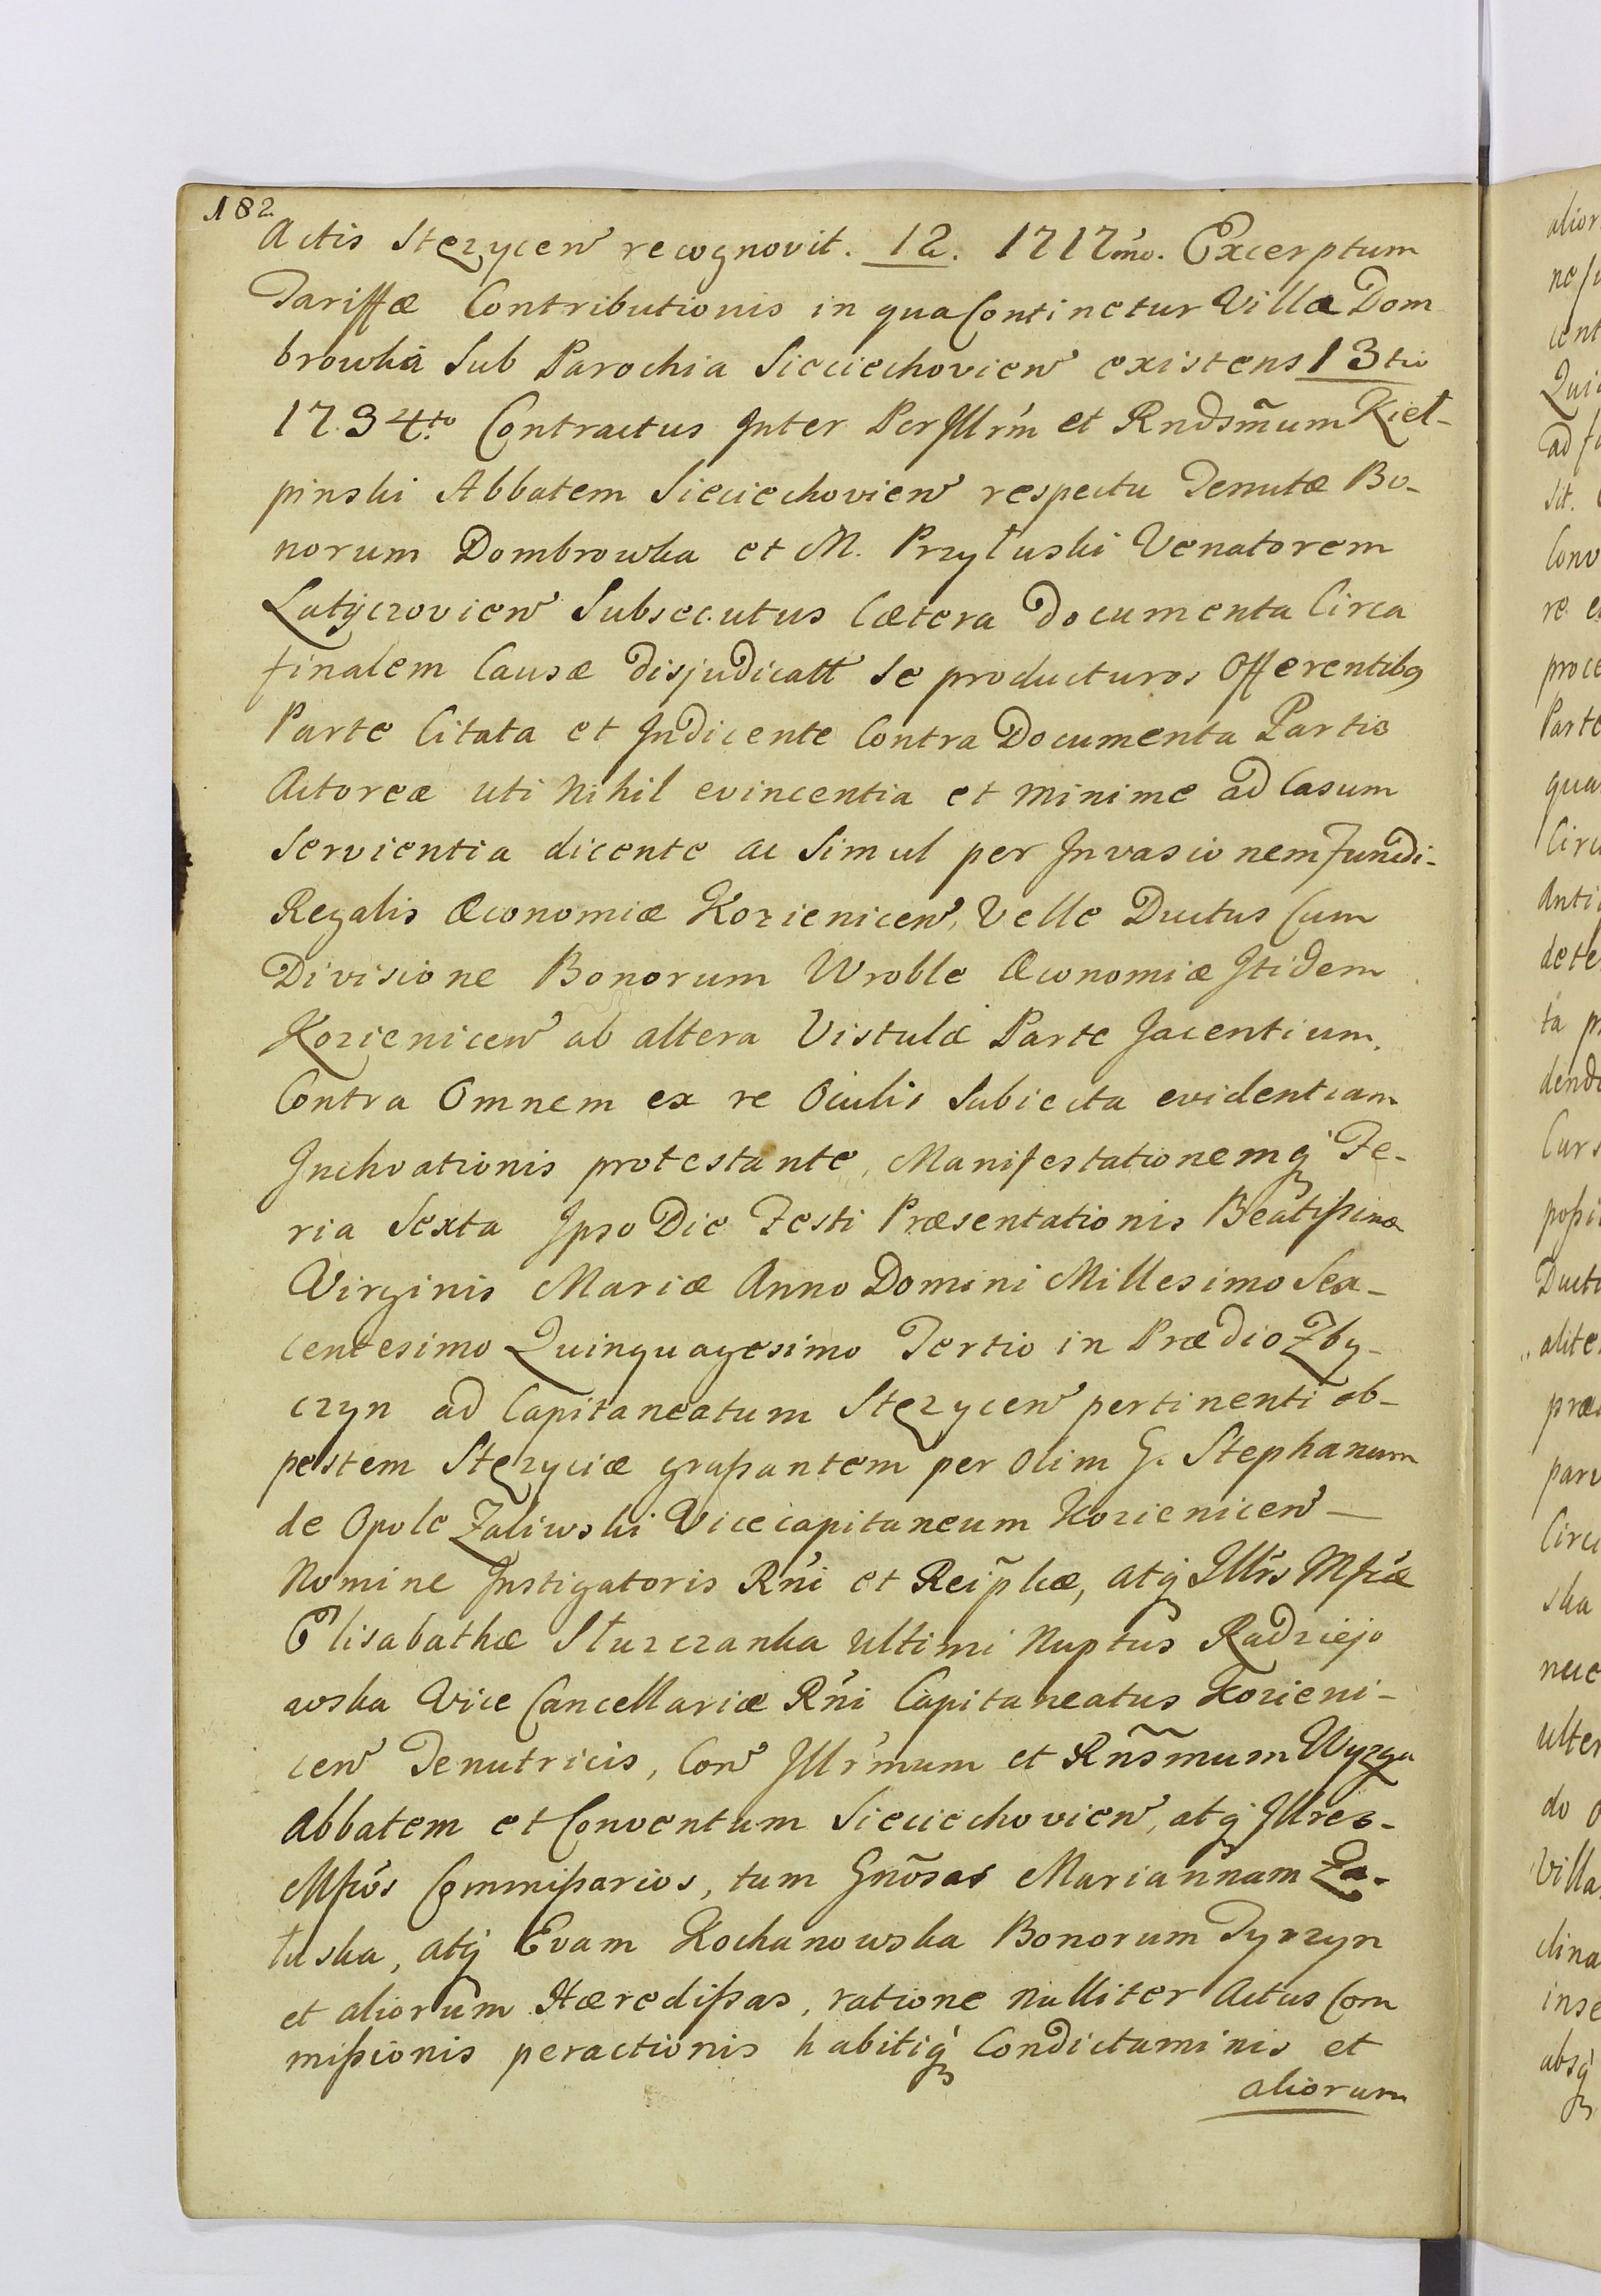 182.
Actis Stęzycen recognovit. 12. 1717mo. Excerptum
Tariffæ Contributionis in qua Continetur Villa Dom
browka Sub Parochia Sieciechovien existens 13tio
1734to Contractus Inter PerIllrm et Rndsm̃um Kieł-
pinski Abbatem Sieciechovien respectu Tenutæ Bo-
norum Dombrowka et M. Przyłuski Venatorem
Latyczovien Subsecutus Cætera Documenta Circa
finalem Causæ disjudicatt Se producturos Offerentibq
Parte Citata et Indicente Contra Documenta Partis
Actoreæ uti Nihil evincentia et minime ad Casum
Servientia dicente ac Simul per Invasionem Fundi-
Regalis Œconomiæ Kozienicen, Velle Ductus Cum
Divisione Bonorum Wroble Œconomiæ Itidem
Kozienicen ab altera Vistulæ Parte Jacentium.
Contra Omnem ex re Oculis Subiecta evidentiam
Inchoationis protestante, Manifestationemq Fe-
ria Sexta Ipso Die Festi Præsentationis Beatißimæ
Virginis Mariæ Anno Domini Millesimo Sex-
centesimo Quinquagesimo Tertio in Prædio Zby-
czyn ad Capitaneatum Stęzycen pertinenti ob-
pestem Stęzyciæ graßantem per Olim G. Stephanum
de Opole Zaliwski Vicecapitaneum Kozienicen —
Nomine Instigatoris Rńi et Reip̃licæ, atq Illrs Mficæ
Elisabathæ Słuzczanka Ultimi Nuptus Radziejo
wska Vice Cancellariæ Rńi Capitaneatus Kozieni-
cen Tenutricis, Con Illr̃mum et Rñs̃mum Wyzga
Abbatem et Conventum Sieciechovien, atq Illres-
Mficos Commißarios, tum Gñosas Mariannam Za-
łuska, atq Evam Kochanowska Bonorum Tyrzyn
et aliorum Hæredißas, ratione nulliter Actus Com
mißionis peractionis habitiq Condictaminis et
aliorum